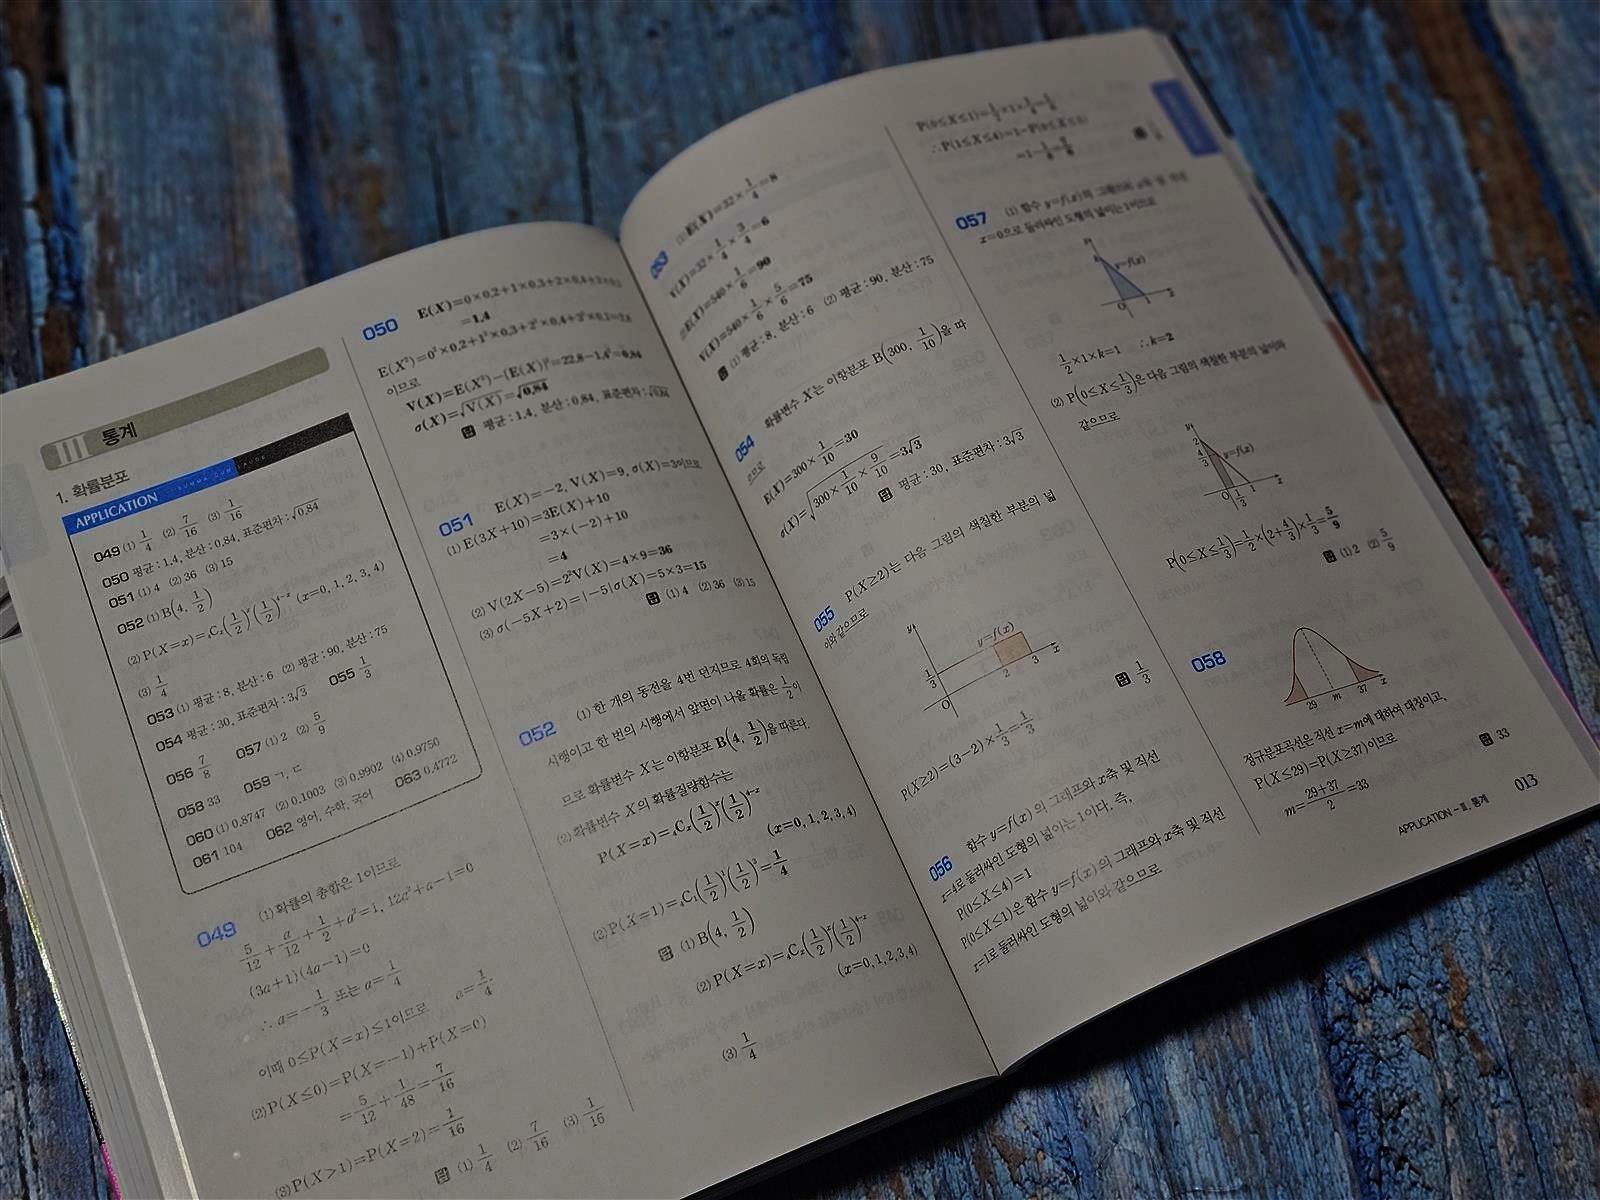 III 통계
1. 확률분포
APPLICATION SUMMA CUM LAUDE
049 (1) 1/4 (2) 7/16 (3) 1/16
050 평균 : 1.4, 분산 : 0.84, 표준편차 : √0.84
051 (1) 4 (2) 36 (3) 15
052 (1) B(4, 1/2)
(2) P(X=x)=₄Cₓ(1/2)^x(1/2)^(4-x) (x=0, 1, 2, 3, 4)
(3) 1/4
053 (1) 평균 : 8, 분산 : 6 (2) 평균 : 90, 분산 : 75
054 평균 : 30, 표준편차 : 3√3 055 1/3
056 7/8 057 (1) 2 (2) 5/9
058 33 059 ㄱ, ㄷ
060 (1) 0.8747 (2) 0.1003 (3) 0.9902 (4) 0.9750
061 104 062 영어, 수학, 국어 063 0.4772
049 (1) 확률의 총합은 1이므로
5/12+a/12+1/2+a²=1, 12a²+a-1=0
(3a+1)(4a-1)=0
∴ a=-1/3 또는 a=1/4
이때 0≤P(X=x)≤1이므로 a=1/4
(2) P(X≤0)=P(X=-1)+P(X=0)
=5/12+1/48=7/16
(3) P(X>1)=P(X=2)=1/16
답 (1) 1/4 (2) 7/16 (3) 1/16
050 E(X)=0×0.2+1×0.3+2×0.4+3×0.1
=1.4
E(X²)=0²×0.2+1²×0.3+2²×0.4+3²×0.1=2.8
이므로
V(X)=E(X²)-{E(X)}²=22.8-1.4²=0.84
σ(X)=√V(X)=√0.84
답 평균 : 1.4, 분산 : 0.84, 표준편차 : √0.84
051 E(X)=-2, V(X)=9, σ(X)=3이므로
(1) E(3X+10)=3E(X)+10
=3×(-2)+10
=4
(2) V(2X-5)=2²V(X)=4×9=36
(3) σ(-5X+2)=|-5|σ(X)=5×3=15
답 (1) 4 (2) 36 (3) 15
052 (1) 한 개의 동전을 4번 던지므로 4회의 독립
시행이고 한 번의 시행에서 앞면이 나올 확률은 1/2이
므로 확률변수 X는 이항분포 B(4, 1/2)을 따른다.
(2) 확률변수 X의 확률질량함수는
P(X=x)=₄Cₓ(1/2)^x(1/2)^(4-x)
(x=0, 1, 2, 3, 4)
(3) P(X=1)=₄C₁(1/2)¹(1/2)³=1/4
답 (1) B(4, 1/2)
(2) P(X=x)=₄Cₓ(1/2)^x(1/2)^(4-x)
(x=0, 1, 2, 3, 4)
(3) 1/4
053 (1) E(X)=32×1/4=8
V(X)=32×1/4×3/4=6
(2) E(X)=540×1/6=90
V(X)=540×1/6×5/6=75
답 (1) 평균 : 8, 분산 : 6 (2) 평균 : 90, 분산 : 75
054 확률변수 X는 이항분포 B(300, 1/10)을 따
르므로
E(X)=300×1/10=30
σ(X)=√(300×1/10×9/10)=3√3
답 평균 : 30, 표준편차 : 3√3
055 P(X≥2)는 다음 그림의 색칠한 부분의 넓
이와 같으므로
y
y=f(x)
1/3
O 2 3 x
P(X≥2)=(3-2)×1/3=1/3
답 1/3
056 함수 y=f(x)의 그래프와 x축 및 직선
x=4로 둘러싸인 도형의 넓이는 1이다. 즉,
P(0≤X≤4)=1
P(0≤X≤1)은 함수 y=f(x)의 그래프와 x축 및 직선
x=1로 둘러싸인 도형의 넓이와 같으므로
P(0≤X≤1)=1/2×1×1/4=1/8
∴ P(1≤X≤4)=1-P(0≤X≤1)
=1-1/8=7/8
057 (1) 함수 y=f(x)의 그래프와 x축 및 직선
x=0으로 둘러싸인 도형의 넓이는 1이므로
y
k y=f(x)
O 1 x
1/2×1×k=1 ∴ k=2
(2) P(0≤X≤1/3)은 다음 그림의 색칠한 부분의 넓이와
같으므로
y
2
4/3 y=f(x)
O 1/3 1 x
P(0≤X≤1/3)=1/2×(2+4/3)×1/3=5/9
답 (1) 2 (2) 5/9
058
29 m 37 x
정규분포곡선은 직선 x=m에 대하여 대칭이고,
P(X≤29)=P(X≥37)이므로
m=(29+37)/2=33
답 33
APPLICATION - III. 통계 013